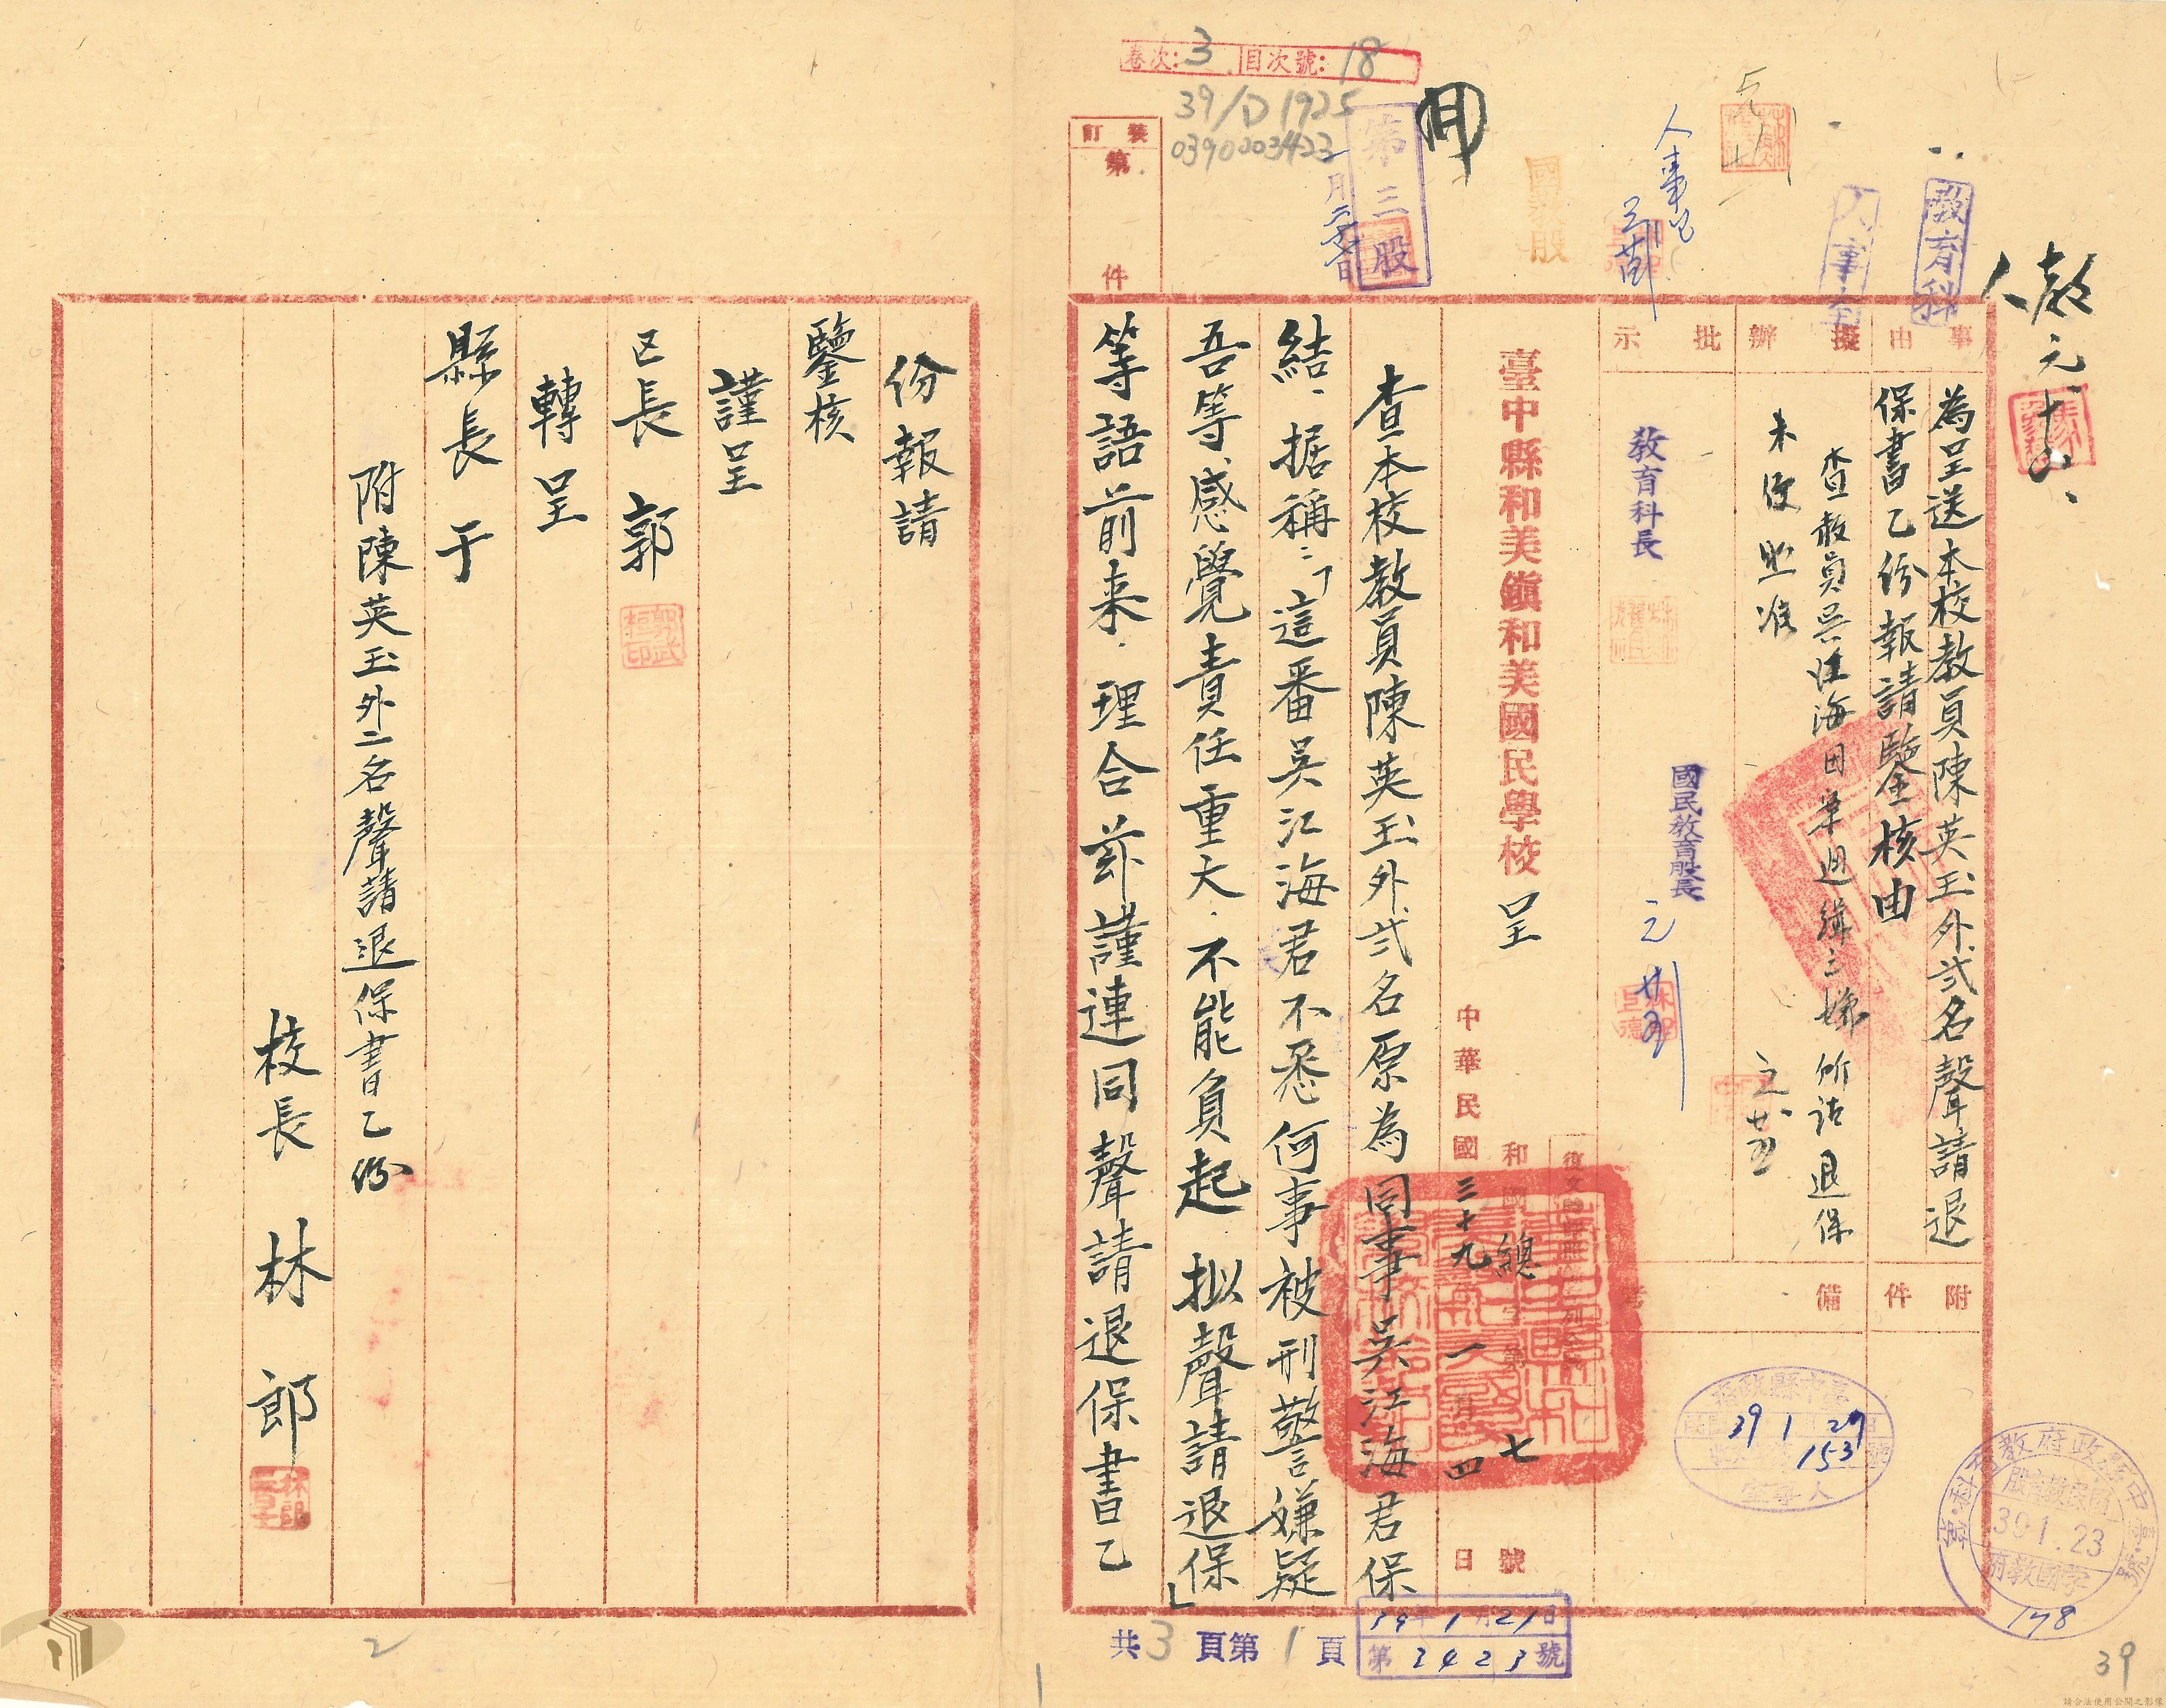 卷次：3 目次號：18
39/D 1925
0390003423
裝訂
第
件
第三股
一月二十七日
國教股
人事室
教育科
人事室
事由
為呈送本校教員陳英玉外弍名聲請退
保書乙份報請鑒核由
擬辦
查教員吳江海因筆迥緝之嫌所請退保
未便照准
批示
教育科長
國民教育股長
附件
備考
臺中縣和美鎮和美國民學校 呈
中華民國三十九年一月四日
和國總字第七號
查本校教員陳英玉外弍名原為同事吳江海君保
結、据稱：「這番吳江海君不悉何事被刑警嫌疑
吾等感覺責任重大．不能負起．拟聲請退保」
等語前来．理合萚謹連同聲請退保書乙
份報請
鑒核
謹呈
區長 郭
轉呈
縣長 于
附陳英玉外二名聲請退保書乙份
校長 林 郎
39 1 27
153
臺中縣政府教育科
39.1.23
178
39年1月21日
第3423號
共3頁第1頁
2
39
請合法使用公開之影像